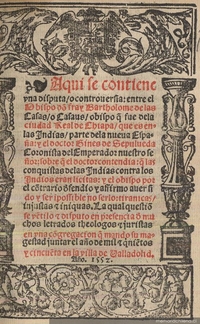 Aqui se contiene
vna disputa/o controuersia: entre el
Obispo dõ fray Bartholome de las
Casas/o Casaus/obispo q̃ fue dela
ciudad Real de Chiapa/que es en
las Indias/parte dela nueua Espa-
ña: y el doctor Gines de Sepulueda
Coronista del Emperador nuestro se-
ñor: sobre q̃ el doctor contendia: q̃ las
conquistas delas Indias contra los
Indios eran licitas: y el obispo por
el cõtrario d̃fendio y affirmo auer si-
do y ser ĩpossible no serlo: tiranicas/
injustas & iniquas. La qual questiõ
se vẽtilo & disputo en presencia d̃ mu
chos letrados theologos & juristas
en vna cõgregacion q̃ mando su ma-
gestad juntar el año de mil & quiẽtos
y cincuẽta en la villa de Valladolid.
Año. 1552.